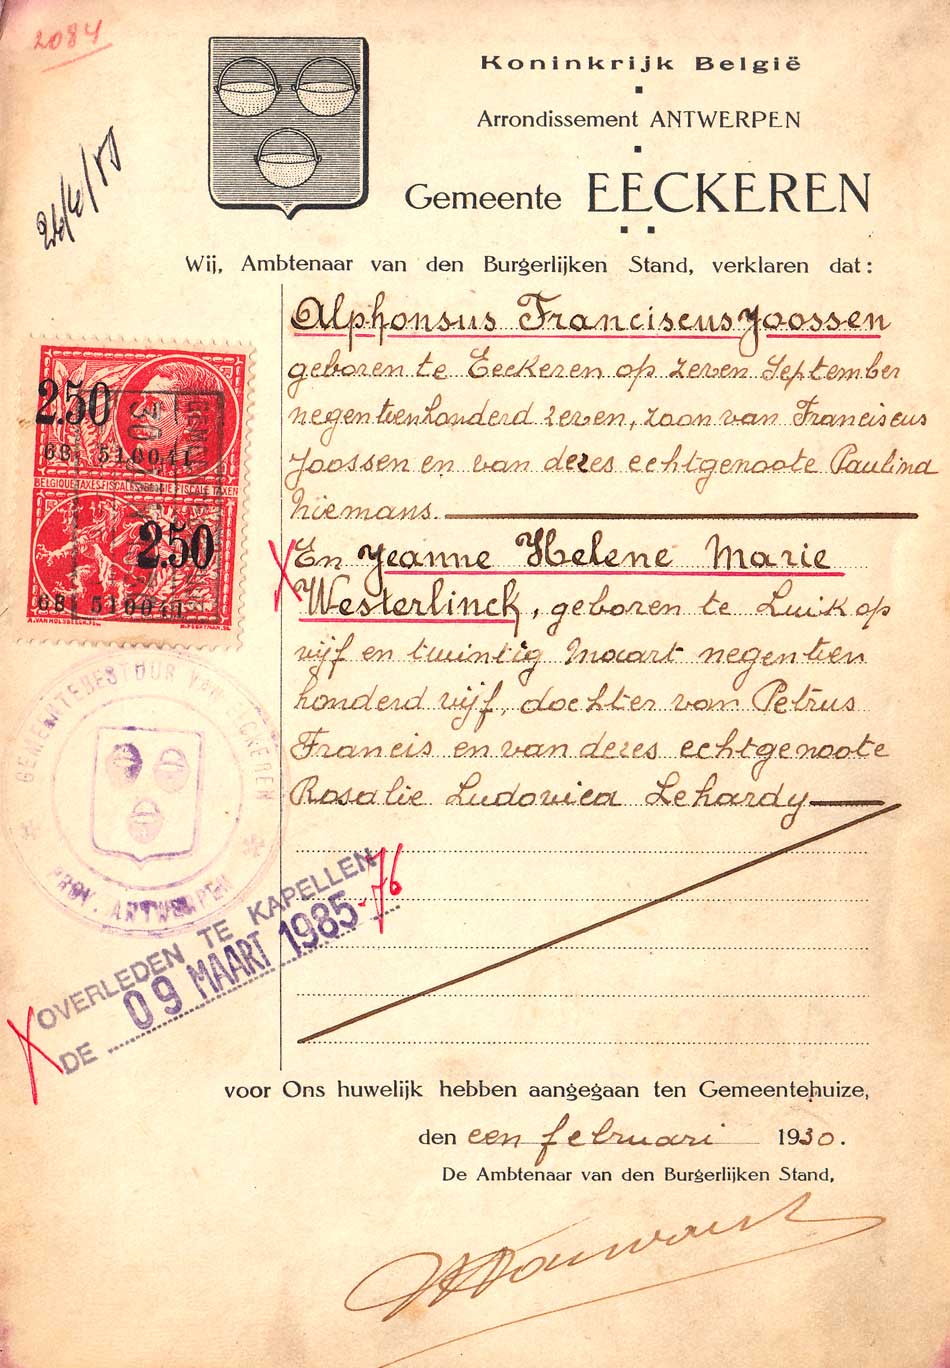 2084
Koninkrijk België
Arrondissement ANTWERPEN
Gemeente EECKEREN
Wij, Ambtenaar van den Burgerlijken Stand, verklaren dat:
Alphonsus Franciscus Joossen
geboren te Eeckeren op zeven September
negentienhonderd zeven, zoon van Franciscus
Joossen en van dezes echtgenoote Paulina
Niemans.
X En Jeanne Helene Marie
Westerlinck, geboren te Luik op
vijf en twintig Maart negentien
honderd vijf, dochter van Petrus
Francis en van dezes echtgenoote
Rosalie Ludovica Lehardy
2.50
68 510041
BELGIQUE TAXES FISCALES BELGIE FISCALE TAXEN
2.50
68 510041
GEMEENTEBESTUUR VAN EECKEREN
PROV. ANTWERPEN
X OVERLEDEN TE KAPELLEN
DE 09 MAART 1985 - 76
voor Ons huwelijk hebben aangegaan ten Gemeentehuize,
den een februari 1930.
De Ambtenaar van den Burgerlijken Stand,